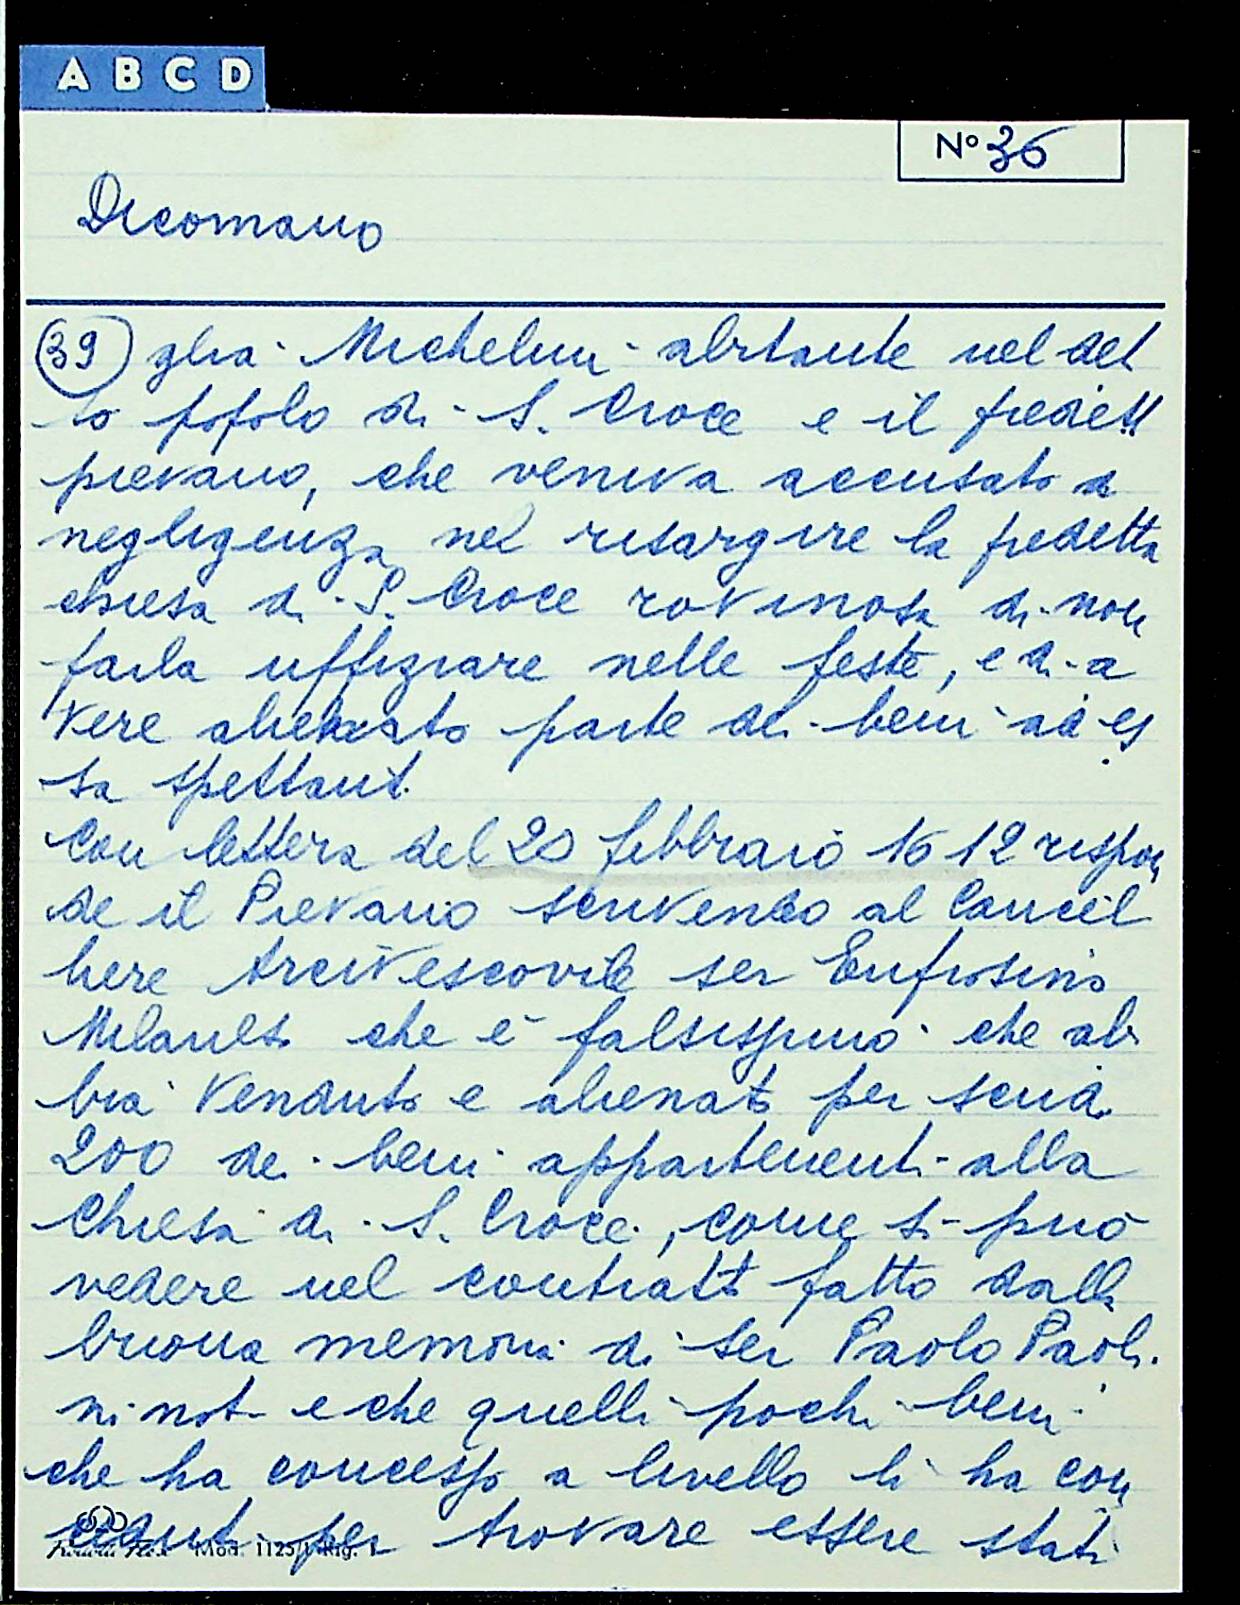 A B C D
Nº 36
Dicomano
39 glia Michelini abitante nel det
to popolo di S. Croce e il predett
pievano, che veniva accusato di
negligenza nel risargire la predetta
chiesa di S. Croce rovinosa di non
farla uffiziare nelle feste, e di a
vere alienato parte dei beni ad es
sa spettanti.
Con lettera del 20 febbraio 1612 rispon
de il Pievano scrivendo al Cancel
liere Arcivescovile ser Eufrosino
che è falsissimo che ab
bia venduto e alienato per scudi
200 dei beni appartenenti alla
Chiesa di S. Croce, come si può
vedere nel contratto fatto dalla
buona memoria di ser Paolo Paoli
ni not. e che quelli pochi beni
che ha concesso a livello li ha con
per trovare essere stati
Mod. 1125/1 Rig. 1